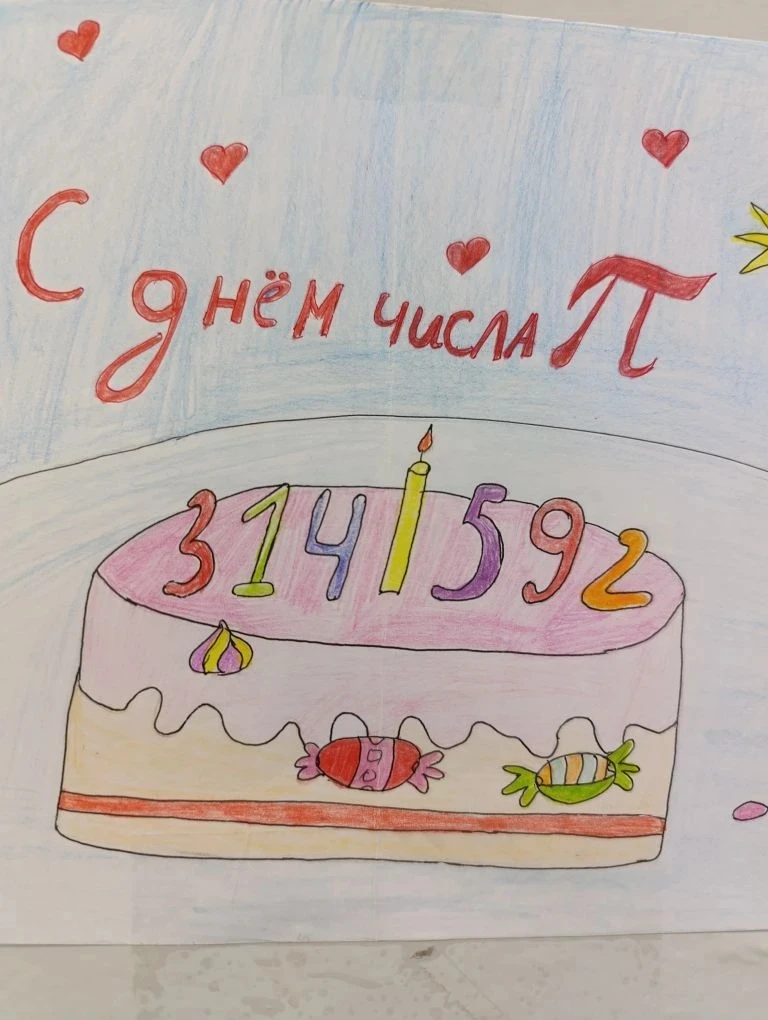 С днём числа π
314 592